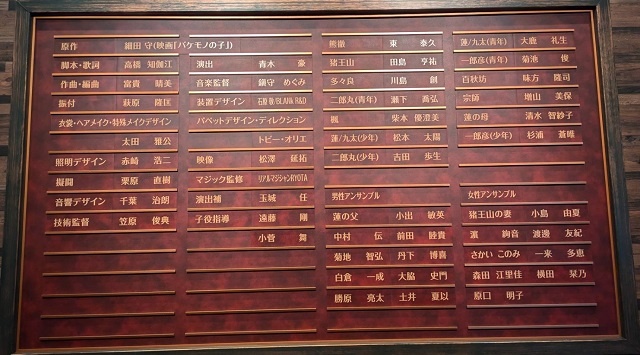 原作 細田 守(映画「バケモノの子」)
脚本・歌詞 高橋 知伽江
作曲・編曲 富貴 晴美
振付 萩原 隆匡
衣裳・ヘアメイク・特殊メイクデザイン
太田 雅公
照明デザイン 赤崎 浩二
擬闘 栗原 直樹
音響デザイン 千葉 治朗
技術監督 笠原 俊典
演出 青木 豪
音楽監督 鎮守 めぐみ
装置デザイン 石原 敬/BLANK R&D
パペットデザイン・ディレクション
トビー・オリエ
映像 松澤 延拓
マジック監修 リアルマジシャンRYOTA
演出補 玉城 任
子役指導 遠藤 剛
小菅 舞
熊徹 東 泰久
猪王山 田島 亨祐
多々良 川島 創
二郎丸(青年) 瀬下 喬弘
楓 柴本 優澄美
蓮/九太(少年) 松本 太陽
二郎丸(少年) 古田 歩生
蓮/九太(青年) 大鹿 礼生
一郎彦(青年) 菊池 俊
百秋坊 味方 隆司
宗師 増山 美保
蓮の母 清水 智紗子
一郎彦(少年) 杉浦 蒼唯
男性アンサンブル
蓮の父 小出 敏英
中村 伝 前田 睦貴
菊地 智弘 丹下 博喜
白倉 一成 大脇 史門
勝原 亮太 土井 夏以
女性アンサンブル
猪王山の妻 小島 由夏
濵 絢音 渡邊 友紀
さかい このみ 一来 多恵
森田 江里佳 横田 栞乃
原口 明子